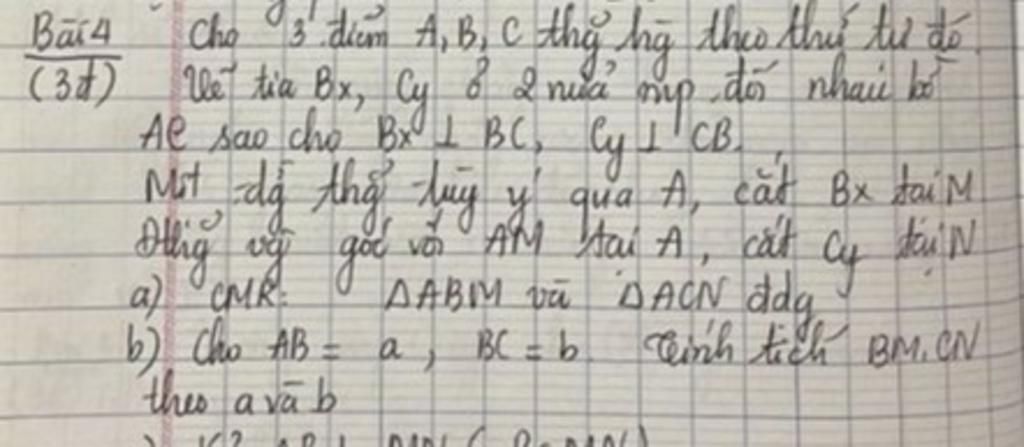 Bài 4 Cho 3 điểm A, B, C thg hg theo thứ tự đó.
(3đ) Vẽ tia Bx, Cy ở 2 nửa mp đối nhau bờ
AC sao cho Bx ⊥ BC, Cy ⊥ CB.
Một đg thg tùy ý qua A, cắt Bx tại M
Đthg vg góc với AM tại A, cắt Cy tại N
a) CMR: ΔABM và ΔACN đdg
b) Cho AB = a, BC = b. Tính tích BM.CN
theo a và b